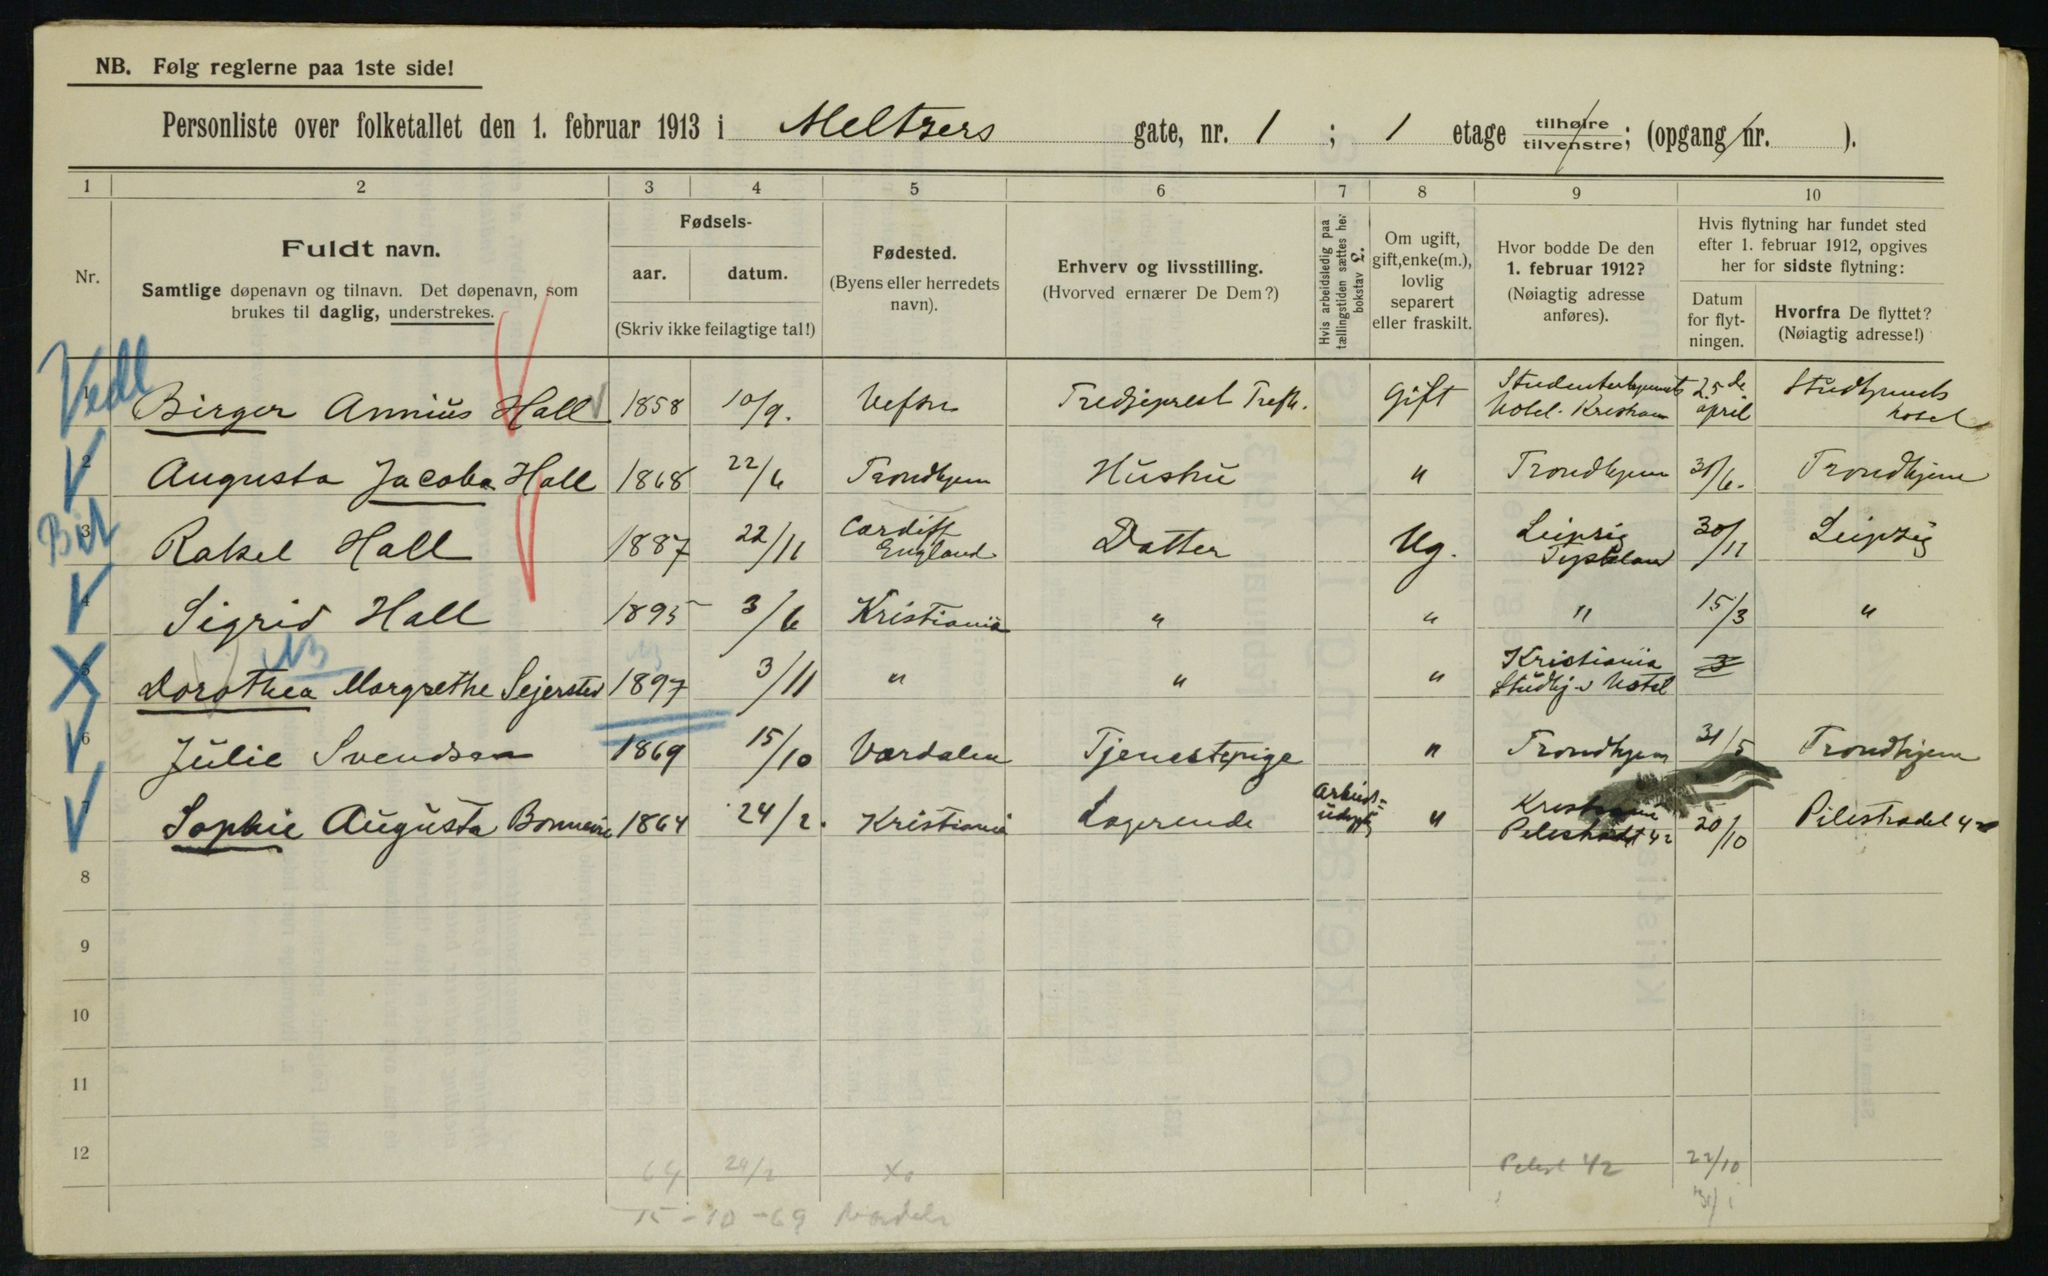 NB. Følg reglerne paa 1ste side!
Personliste over folketallet den 1. februar 1913 i Meltzers gate, nr. 1 ; 1 etage tilhøire tilvenstre; (opgang nr. ).
1 2 3 4 5 6 7 8 9 10
Nr.
Fuldt navn.
Samtlige døpenavn og tilnavn. Det døpenavn, som
brukes til daglig, understrekes.
Fødsels-
aar. datum.
(Skriv ikke feilagtige tal!)
Fødested.
(Byens eller herredets
navn).
Erhverv og livsstilling.
(Hvorved ernærer De Dem?)
Hvis arbeidsledig paa
tællingstiden sættes her
bokstav L.
Om ugift,
gift, enke(m.),
lovlig
separert
eller fraskilt.
Hvor bodde De den
1. februar 1912?
(Nøiagtig adresse
anføres).
Hvis flytning har fundet sted
efter 1. februar 1912, opgives
her for sidste flytning:
Datum
for flyt-
ningen.
Hvorfra De flyttet?
(Nøiagtig adresse!)
Vedl
1 Birger Annius Hall 1858 10/9. Vefsn Gift Hotel 25de april hotel
2 Augusta Jacoba Hall 1868 22/6 Trondhjem Hustru " Trondhjem 6. Trondhjem
Bil
3 Rakel Hall 1887 22/11 Cardiff England Datter Ug. Leipzig 30/11 Leipzig
4 Sigrid Hall 1895 3/6 Kristiania " " " 15/3 "
NB
5 Dorothea Margrethe Sejersted 1897 3/11 " " " Kristiania Studhj. Hotel
6 Julie Svendsen 1869 15/10 Værdalen Tjenestepige " Trondhjem 31/5 Trondhjem
7 Sophie Augusta Bonnevie 1864 24/2. Kristiania Logerende " Pilestrædet 42 20/10 Pilestrædet 42
8
9
10
11
12 64 24/2 Xa Pilest 42 22/10
15-10-69